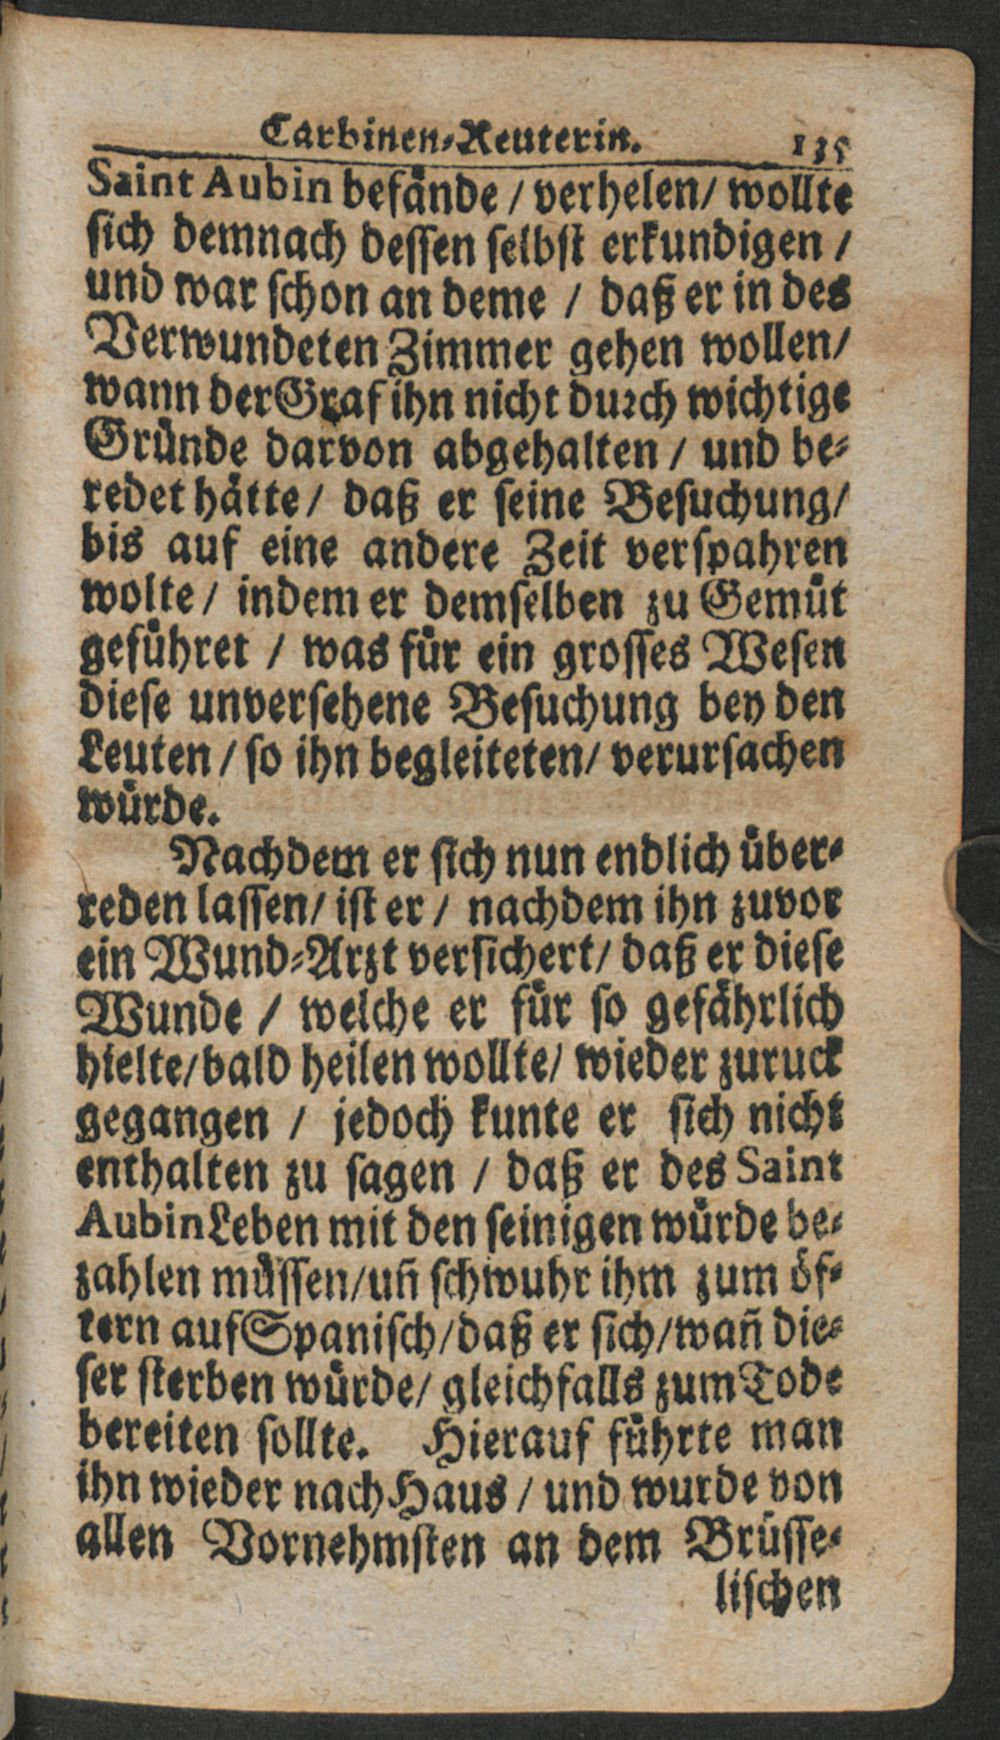 Carbinen-Reuterin. 135
Saint Aubin befände / verhelen / wollte
sich demnach dessen selbst erkundigen /
und war schon an deme / daß er in des
Verwundeten Zimmer gehen wollen /
wann der Graf ihn nicht durch wichtige
Gründe darvon abgehalten / und be-
redet hätte / daß er seine Besuchung /
bis auf eine andere Zeit verspahren
wolte / indem er demselben zu Gemüt
geführet / was für ein grosses Wesen
diese unversehene Besuchung bey den
Leuten / so ihn begleiteten / verursachen
würde.
Nachdem er sich nun endlich über-
reden lassen / ist er / nachdem ihn zuvor
ein Wund-Arzt versichert / daß er diese
Wunde / welche er für so gefährlich
hielte / bald heilen wollte / wieder zuruck
gegangen / jedoch kunte er sich nicht
enthalten zu sagen / daß er des Saint
Aubin Leben mit den seinigen würde be-
zahlen müssen / uñ schwuhr ihm zum öf-
tern auf Spanisch / daß er sich / wañ die-
ser sterben würde / gleichfalls zum Tode
bereiten sollte. Hierauf führte man
ihn wieder nach Haus / und wurde von
allen Vornehmsten an dem Brüsse-
lischen